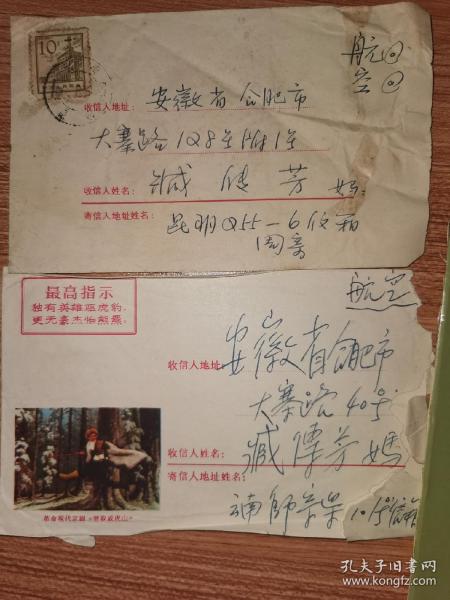 10
航空
收信人地址: 安徽省合肥市
大寨路128号附1号
收信人姓名: 臧 芳 妈
寄信人地址姓名: 昆明055-6信箱
最高指示
独有英雄驱虎豹,
更无豪杰怕熊罴。
航空
收信人地址: 安徽省合肥市
大寨路40号
收信人姓名: 臧 芳 妈
寄信人地址姓名:
革命现代京剧《智取威虎山》
孔夫子旧书网
www.kongfz.com